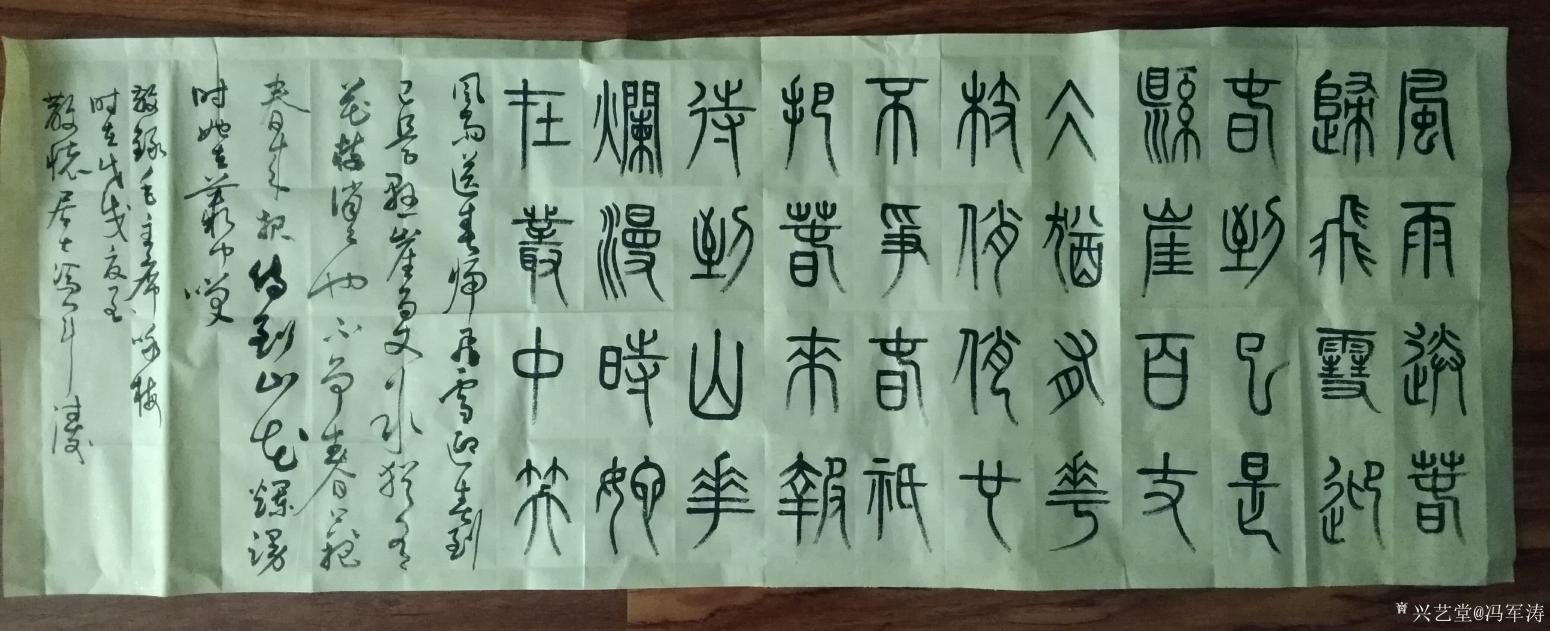 風雨送春
歸飛雪迎
春到已是
縣崖百丈
仌猶有華
枝俏俏也
不爭春祇
把春來報
待到山華
爛漫時她
在叢中笑
风雨送春归飞雪迎春到
已是悬崖百丈冰犹有
花枝俏俏也不争春只把
春来报待到山花烂漫
时她在叢中笑
敬录毛主席咏梅
时在戊戌夏至
散怀居士冯军涛
兴艺堂@冯军涛